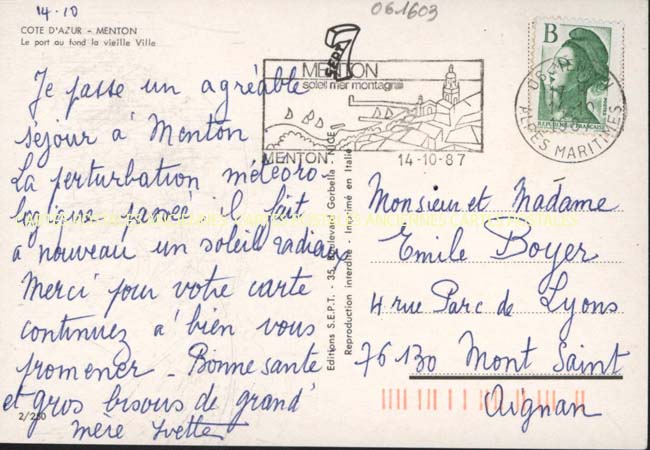 14-10
061603
COTE D'AZUR - MENTON
Le port au fond la vieille Ville
Je passe un agréable
séjour à Menton
La perturbation météoro
logique passée il fait
à nouveau un soleil radiaux
Merci pour votre carte
continuez à bien vous
promener - Bonne santé
et gros bisous de grand'
mère Yvette
2/250
Editions S.E.P.T. - 35, Boulevard Gorbella - NICE
Reproduction interdite - Imprimé en Italie
SEPT
MENTON
soleil mer montagne
MENTON.
14-10-87
B
REPUBLIQUE FRANÇAISE
06
MENTON
ALPES MARITIMES
Monsieur et Madame
Emile Boyer
4 rue Parc de Lyons
76130 Mont Saint
Aignan